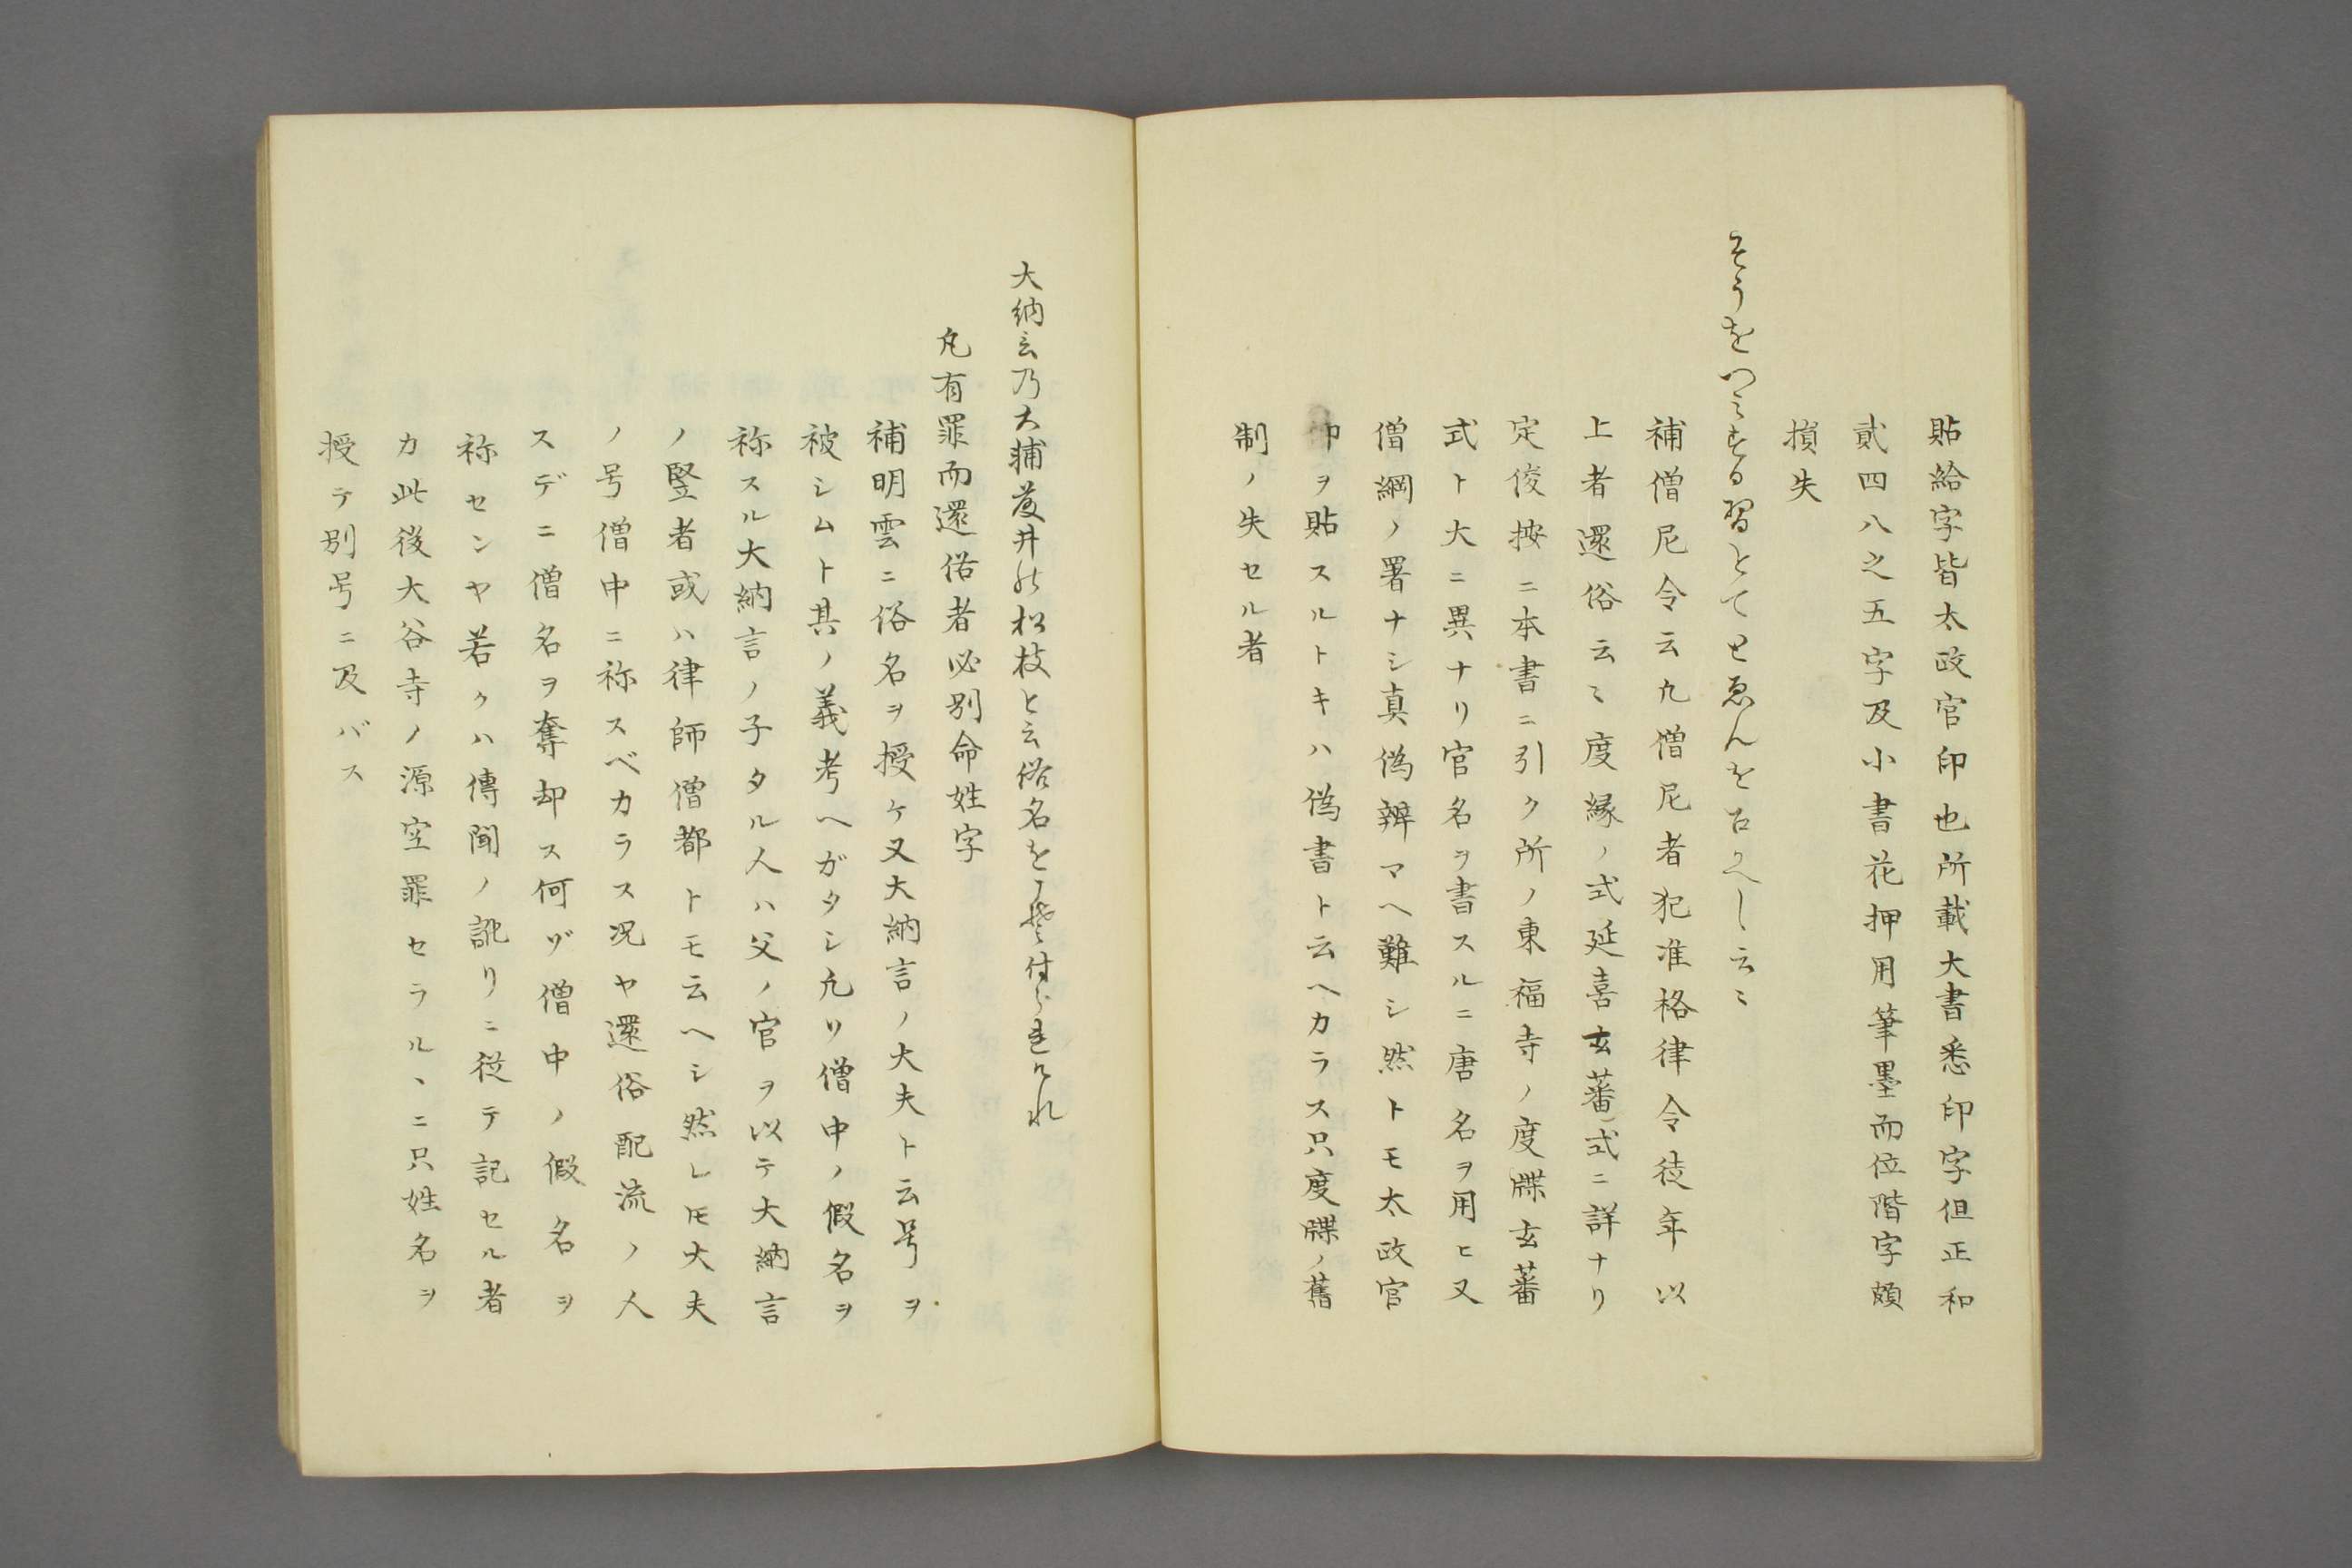 貼給字皆太政官印也所載大書悉印字但正和
貳四八之五字及小書花押用筆墨而位階字頗
損失
そうをつミする習とてとゑんを召かへし云〻
補僧尼令云凢僧尼者犯准格律令徒年以
上者還俗云〻度縁ノ式延喜玄蕃式ニ詳ナリ
定俊按ニ本書ニ引ク所ノ東福寺ノ度牒玄蕃
式ト大ニ異ナリ官名ヲ書スルニ唐名ヲ用ヒ又
僧綱ノ署ナシ真偽辨マヘ難シ然トモ太政官
印ヲ貼スルトキハ偽書ト云ヘカラス只度牒ノ舊
制ノ失セル者
大納言乃大輔藤井の松枝と云俗名をこそ付られけれ
凡有罪而還俗者必別命姓字
補明雲ニ俗名ヲ授ケ又大納言ノ大夫ト云号ヲ
被シムト其ノ義考ヘガタシ凡リ僧中ノ假名ヲ
称スル大納言ノ子タル人ハ父ノ官ヲ以テ大納言
ノ竪者或ハ律師僧都トモ云ヘシ然レ𪜈大夫
ノ号僧中ニ称スベカラス况ヤ還俗配流ノ人
スデニ僧名ヲ奪却ス何ゾ僧中ノ假名ヲ
称センヤ若クハ傳聞ノ訛リニ従テ記セル者
カ此後大谷寺ノ源空罪セラルヽニ只姓名ヲ
授テ別号ニ及バス